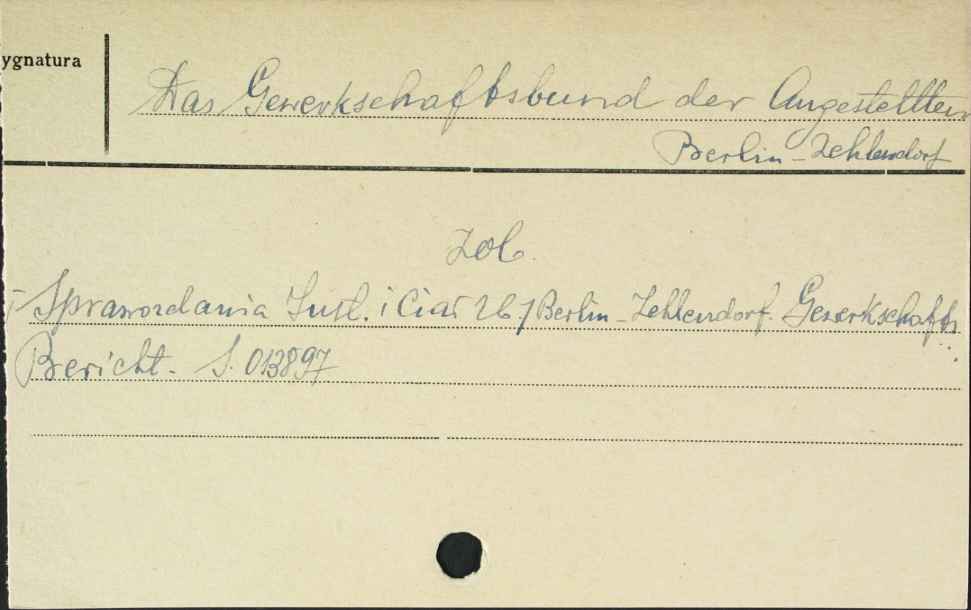 ygnatura
Das Gewerkschaftsbund der Angestellten
Berlin-Zehlendorf
Zob.
Sprawozdania Inst. i Ciał zb. / Berlin-Zehlendorf. Gewerkschafts
Bericht. S. 013897